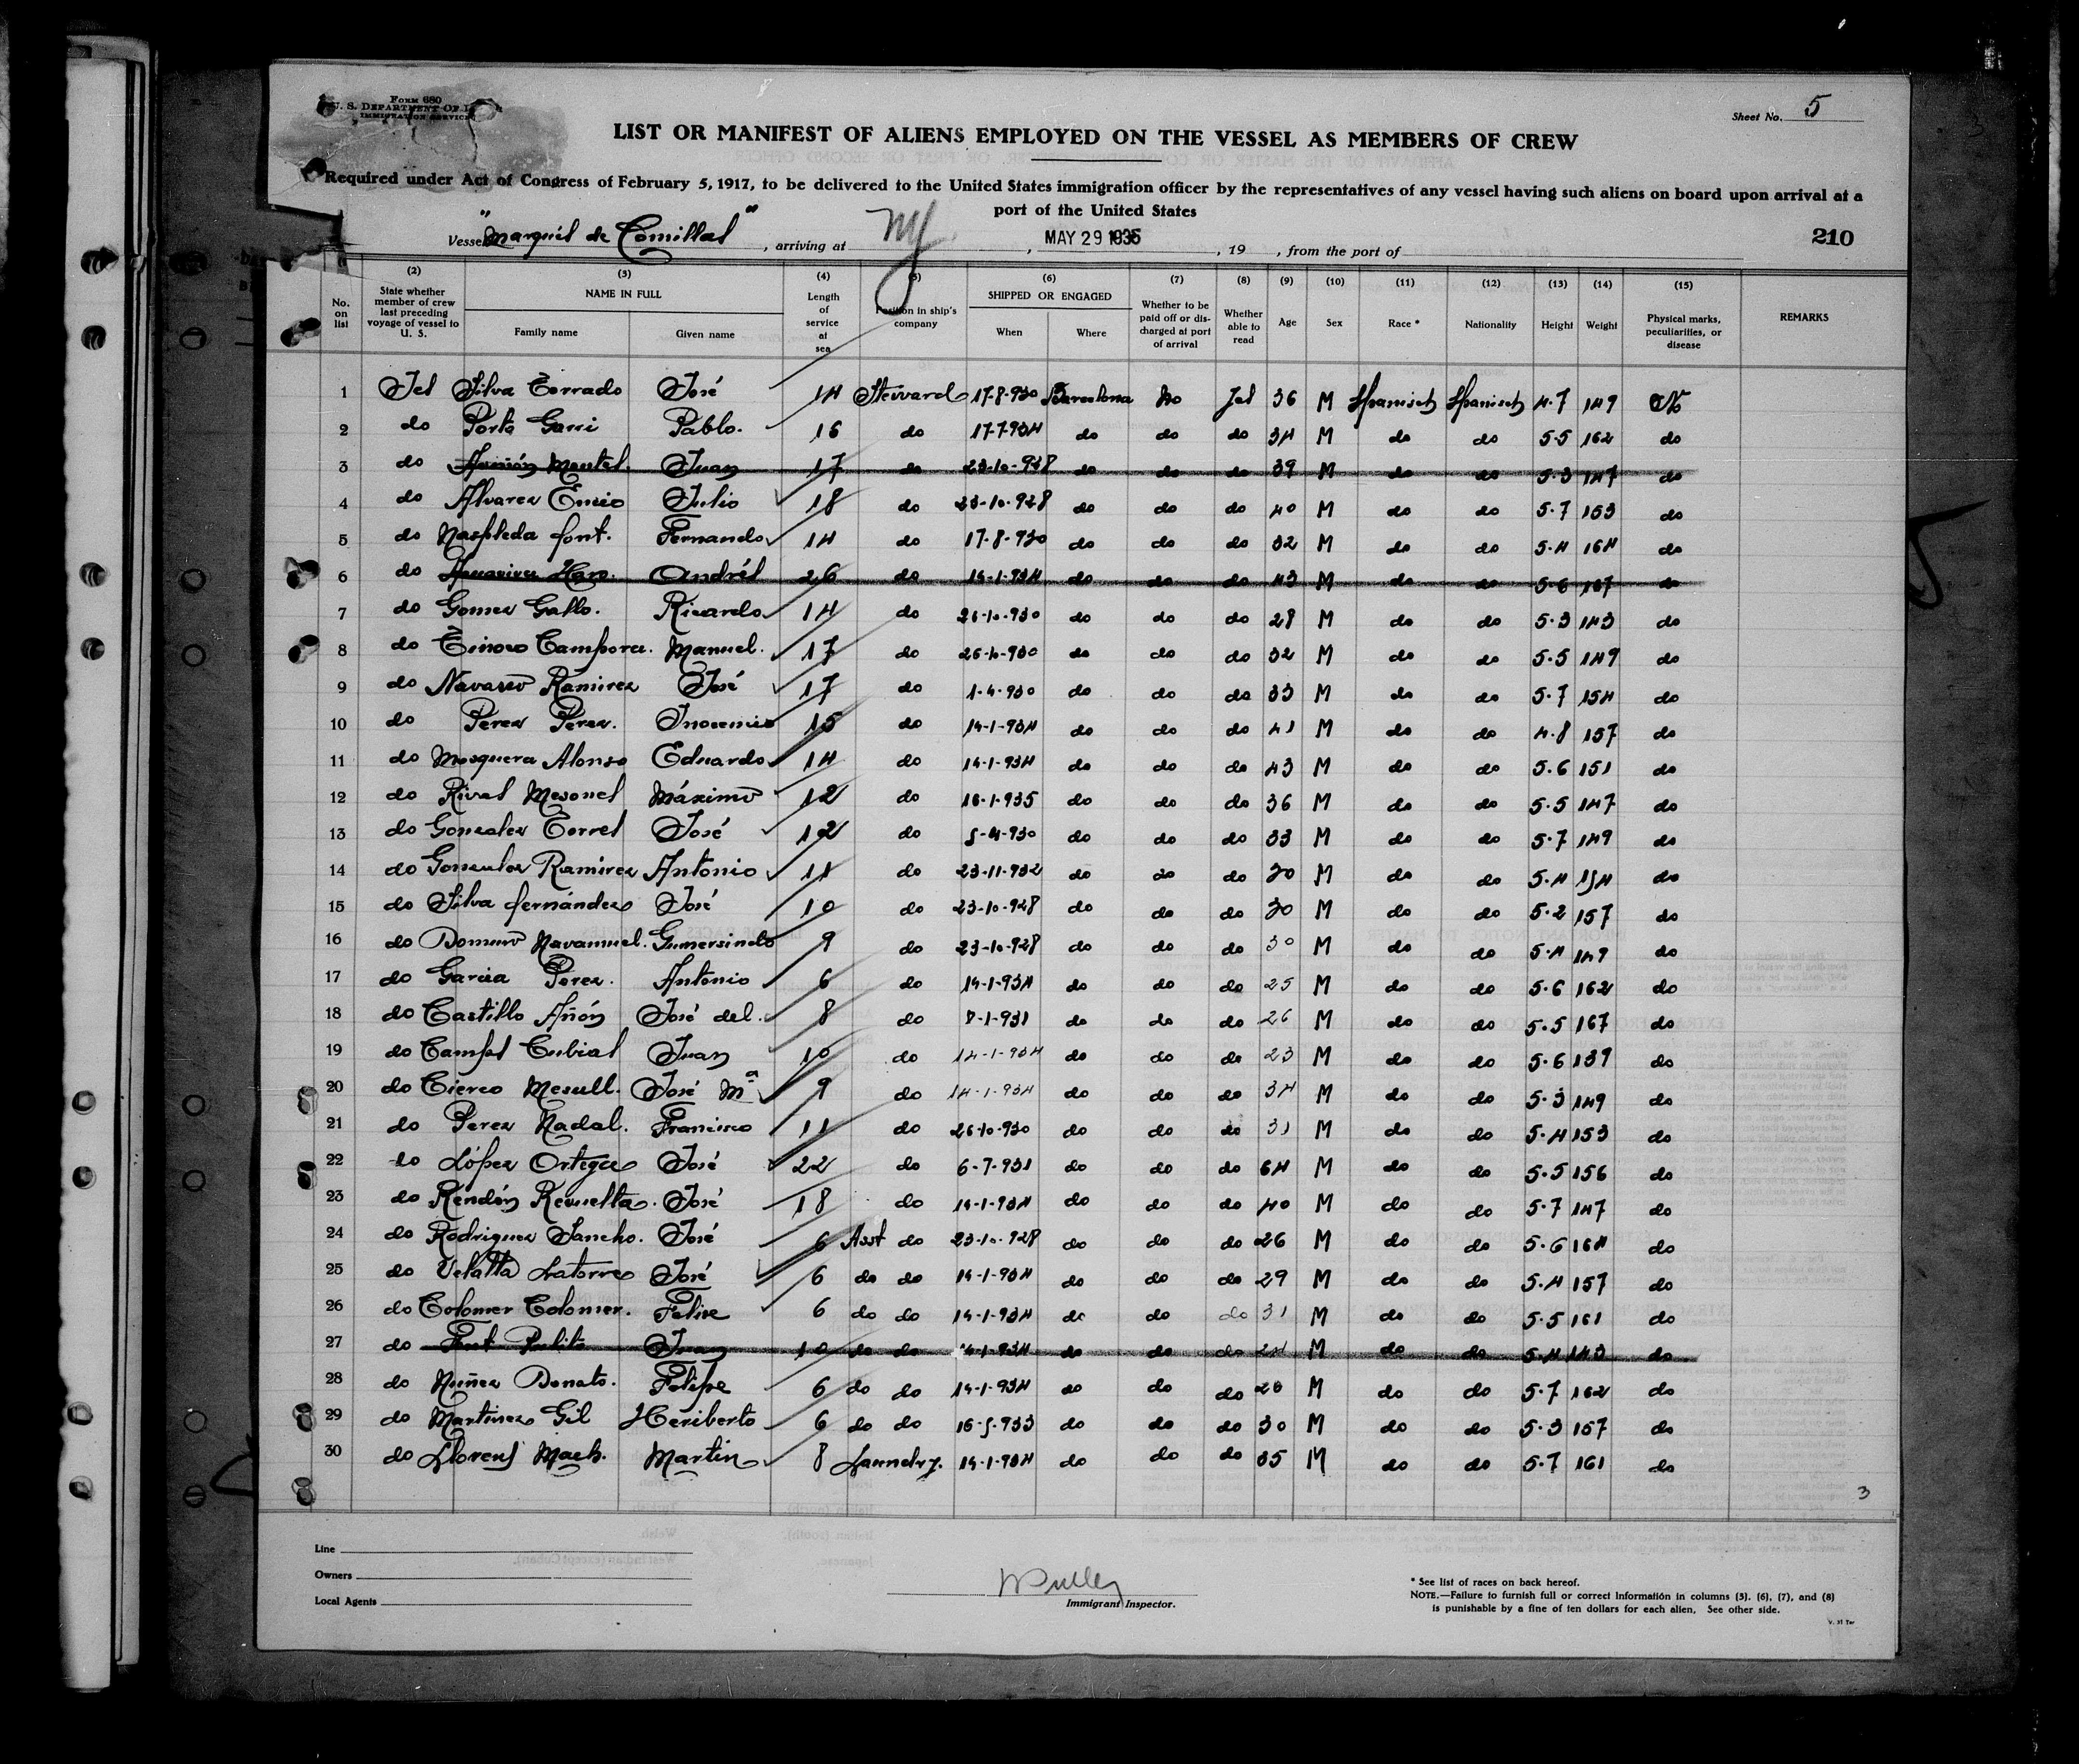 Form 680
U. S. DEPARTMENT OF
IMMIGRATION SERVICE
Sheet No. 5
LIST OR MANIFEST OF ALIENS EMPLOYED ON THE VESSEL AS MEMBERS OF CREW
Required under Act of Congress of February 5, 1917, to be delivered to the United States immigration officer by the representatives of any vessel having such aliens on board upon arrival at a
port of the United States
Vessel "Marqués de Comillas", arriving at NY, MAY 29 1935, 19 , from the port of
210
(2) (3) (4) (5) (6) (7) (8) (9) (10) (11) (12) (13) (14) (15)
No. on list State whether member of crew last preceding voyage of vessel to U. S. NAME IN FULL Family name Given name Length of service at sea Position in ship's company SHIPPED OR ENGAGED When Where Whether to be paid off or discharged at port of arrival Whether able to read Age Sex Race * Nationality Height Weight Physical marks, peculiarities, or disease REMARKS
1 Yes Silva Torrado José 14 Steward 17-8-930 Barcelona No Yes 36 M Spanisch Spanisch 4.7 149 No
2 do Porta Garri Pablo. 16 do 17-7-934 do do do 34 M do do 5.5 162 do
3 do Juan 17 do 23-10-928 do do do 39 M do do 5.3 147 do
4 do Alvarez Julio 18 do 23-10-928 do do do 40 M do do 5.7 153 do
5 do Naspleda font. Fernando 14 do 17-8-930 do do do 32 M do do 5.4 164 do
6 do Andrés 26 do 14-1-934 do do do 43 M do do 5.6 167 do
7 do Gomez Gallo. Ricardo 14 do 26-10-930 do do do 28 M do do 5.3 143 do
8 do Tinoco Campora. Manuel. 17 do 26-10-930 do do do 32 M do do 5.5 149 do
9 do Navarro Ramirez José 17 do 1-4-930 do do do 33 M do do 5.7 154 do
10 do Perez Perez. Inocencio 15 do 14-1-934 do do do 41 M do do 4.8 157 do
11 do Mosquera Alonso Eduardo 14 do 14-1-934 do do do 43 M do do 5.6 151 do
12 do Rivas Mesones Máximo 12 do 16-1-935 do do do 36 M do do 5.5 147 do
13 do Gonzalez Torres José 12 do 5-4-930 do do do 33 M do do 5.7 149 do
14 do Gonzalez Ramirez Antonio 11 do 23-11-932 do do do 30 M do do 5.4 154 do
15 do Silva fernández José 10 do 23-10-928 do do do 30 M do do 5.2 157 do
16 do Navamuel. Gumersindo 9 do 23-10-928 do do do 30 M do do 5.4 149 do
17 do Garcia Perez. Antonio 6 do 14-1-934 do do do 25 M do do 5.6 162 do
18 do Castillo Añón José del. 8 do 8-1-931 do do do 26 M do do 5.5 167 do
19 do Camps Cubias Juan 10 do 14-1-934 do do do 23 M do do 5.6 139 do
20 do Cierco Mesull. José Mª 9 do 14-1-934 do do do 34 M do do 5.3 149 do
21 do Perez Nadal. Francisco 11 do 26-10-930 do do do 31 M do do 5.4 153 do
22 do López Ortega José 22 do 6-7-931 do do do 64 M do do 5.5 156 do
23 do Rendón Revuelta. José 18 do 14-1-934 do do do 40 M do do 5.7 147 do
24 do Rodriguez Sancho. José 6 Asst do 23-10-928 do do do 26 M do do 5.6 164 do
25 do Velatta Latorre José 6 do do 14-1-934 do do do 29 M do do 5.4 157 do
26 do Colomer Colomer. Felix 6 do do 14-1-934 do do do 31 M do do 5.5 161 do
27 do Juan 10 do do 14-1-934 do do do 24 M do do 5.4 143 do
28 do Nuñez Donato. Felipe 6 do do 14-1-934 do do do 28 M do do 5.7 162 do
29 do Martinez Gil Heriberto 6 do do 16-5-933 do do do 30 M do do 5.3 157 do
30 do Llorens Mach. Martin 8 Laundry. 14-1-934 do do do 35 M do do 5.7 161 do
3
Line
Owners
Local Agents
Immigrant Inspector.
* See list of races on back hereof.
NOTE.—Failure to furnish full or correct information in columns (5), (6), (7), and (8)
is punishable by a fine of ten dollars for each alien. See other side.